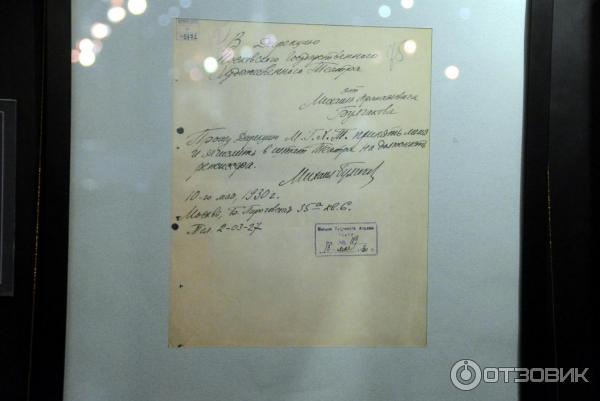 В Дирекцию
Московского Государственного
Художественного Театра
от
Михаила Афанасьевича
Булгакова
Прошу Дирекцию М.Г.Х.Т. принять меня
и зачислить в штат Театра на должность
режиссера.
Михаил Булгаков
10-го мая, 1930 г.
Москва, Б. Пироговская 35а кв. 6.
Тел. 2-03-27
ОТЗОВИК